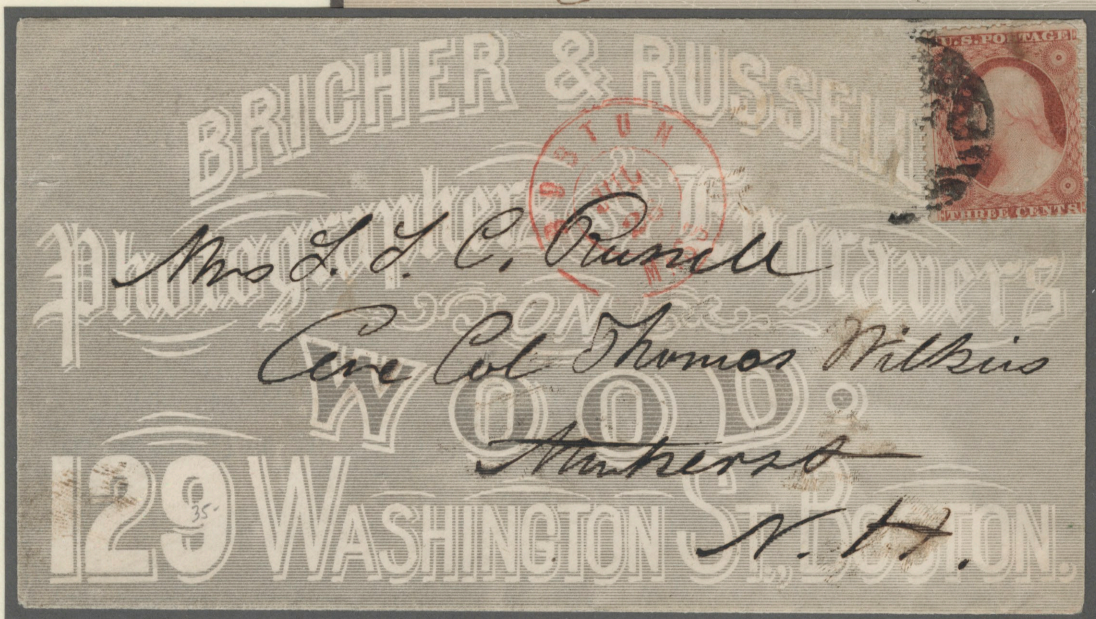 BRICHER & RUSSELL
Photographers Engravers
ON
WOOD:
129 WASHINGTON ST., BOSTON.
U.S. POSTAGE
THREE CENTS
BOSTON
JUL
Mrs L. L. C. Russell
Care Col Thomas Wilkins
Amherst
N. H.
35-